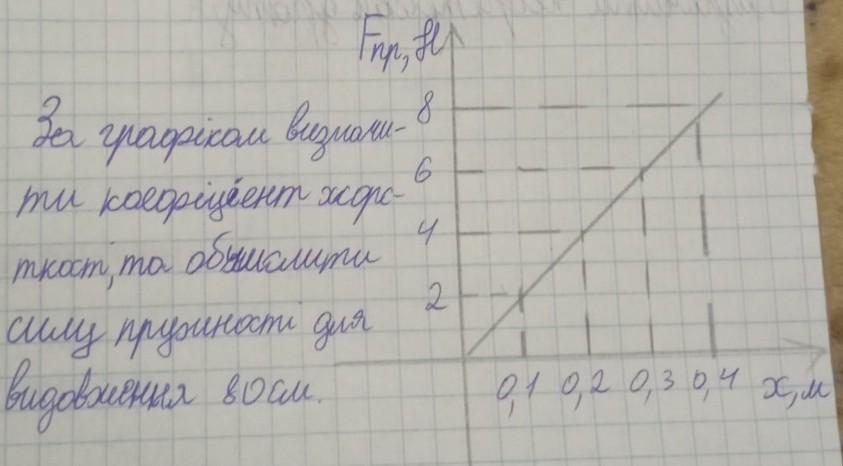 Fпр, Н
За графіком визначи-
ти коефіцієнт жорс-
ткості, та обчислити
силу пружності для
видовження 80см.
8
6
4
2
0,1 0,2 0,3 0,4 х, м